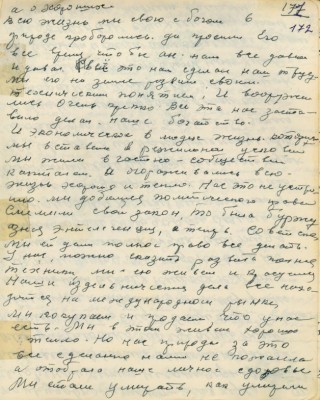 а о хорошим 177
всю жизнь мы свою с богом в 172
природе проборолись. да просили его
все время, чтобы он нам все давал
и давал. все это нам сделал наш труд
мы его на земле развили своим
техническим понятием. И вооружи
лись очень крепко. Все это нас заста
вило делать наше богатство.
И экономическое в людях жизнь, которую
мы вставили в условия
мы жили в частно-собственни
капитал. И огораживались всю
жизнь хорошо и тепло. Нас это не устраи
мы добились политического права
Сменили свой закон, то была буржу
азная интеллигенция, а теперь Советская
мы ей дали полное право все делать.
У нас, можно сказать развита полно
техника мы ею живем и красуемся
Наши изделия дела все нахо
дятся на международном рынке,
мы покупаем и продаем что у нас
есть. Мы в этом живем хорошо
и тепло. Но нас природа за это
все сделанное нами не пожалела
и отобрала наше личное здоровье
Мы стали умирать, как умирали